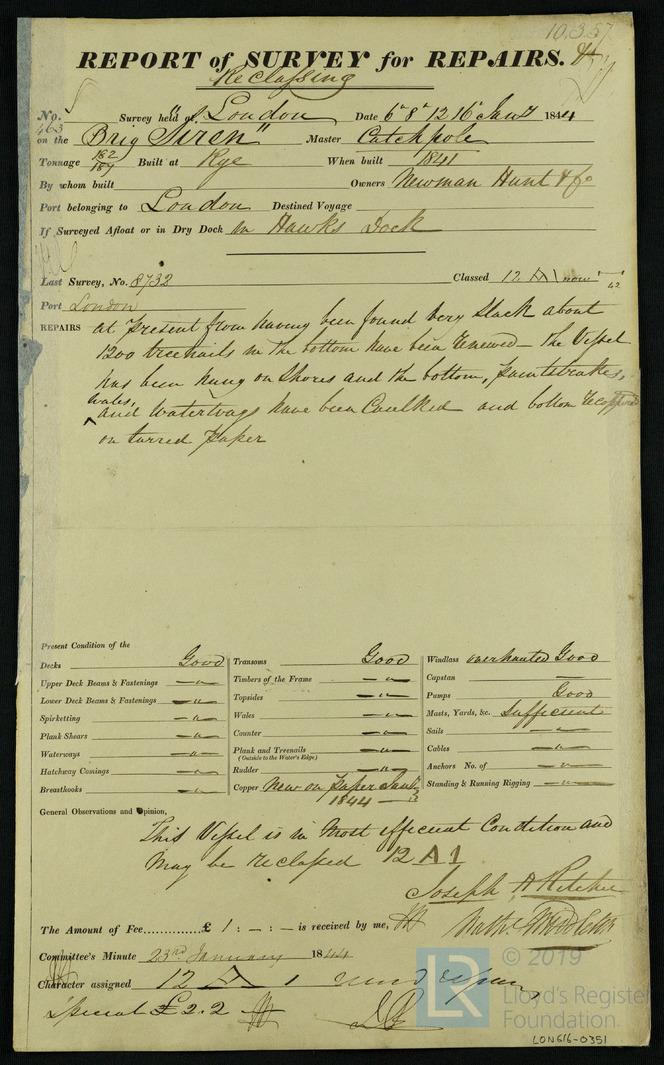 10.3.57
REPORT of SURVEY for REPAIRS.
Reclassing
No. 463 Survey held at London Date 6th 8th 12 16th Jany 1844
on the Brig "Siren" Master Catchpole
Tonnage 182 187 Built at Rye When built 1841
By whom built Owners Newman Hunt & Co
Port belonging to London Destined Voyage
If Surveyed Afloat or in Dry Dock in Hawks Dock
Last Survey, No. 8732 Classed 12 A 1 now 42
Port London
REPAIRS at present from having been found very slack about
1200 treenails in the bottom have been renewed - The Vessel
has been hung on shores and the bottom, paintstrakes,
wales,
and waterways have been Caulked and bottom recoppered
on tarred paper
Present Condition of the
Decks Good Transoms Good Windlass overhauled Good
Upper Deck Beams & Fastenings —"— Timbers of the Frame —"— Capstan —
Lower Deck Beams & Fastenings —"— Topsides —"— Pumps Good
Spirketting —"— Wales —"— Masts, Yards, &c. Sufficient
Plank Shears —"— Counter —"— Sails —"—
Waterways —"— Plank and Treenails —"— Cables —"—
(Outside to the Water's Edge)
Hatchway Comings —"— Rudder —"— Anchors No. of —"—
Breasthooks —"— Copper New on paper Jany 1844 Standing & Running Rigging —"—
General Observations and Opinion,
This Vessel is in most efficient Condition and
may be reclassed 12 A 1
Joseph H Ritchie
The Amount of Fee............£ 1 : - : - is received by me,
Committee's Minute 23rd January 1844
Character assigned 12 A 1
special £2.2
© 2019
LR
Lloyd's Register
Foundation.
LON616-0351